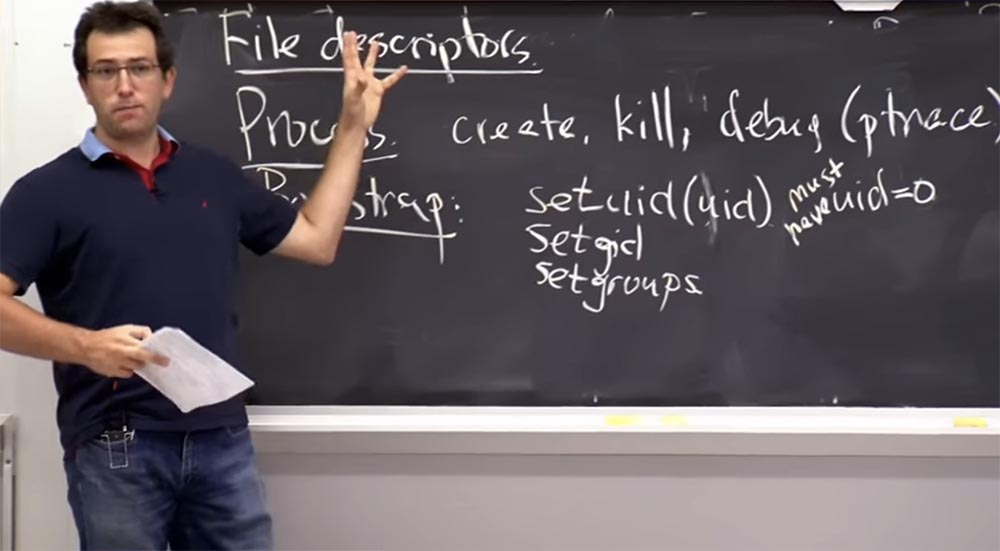 File descriptors.
Process. create, kill, debug (ptrace)
setuid(uid) must have uid=0
setgid
setgroups